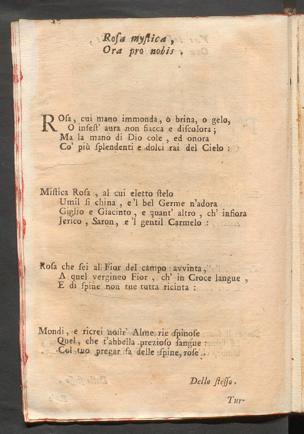 Rosa mystica,
Ora pro nobis.
Rosa, cui mano immonda, ò brina, o gelo,
O infest' aura non fiacca e discolora;
Ma la mano di Dio cole, ed onora
Co' più splendenti e dolci rai del Cielo:
Mistica Rosa, al cui eletto stelo
Umil si china, e'l bel Germe n'adora
Giglio e Giacinto, e quant' altro, ch' infiora
Jerico, Saron, e'l gentil Carmelo:
Rosa che sei al Fior del campo avvinta,
A quel vergineo Fior, ch' in Croce langue,
E di spine non tue tutta ricinta:
Mondi, e ricrei nostr' Alme rie spinose
Quel, che t'abbella prezioso sangue:
Col tuo pregar fa delle spine, rose.
Dello stesso.
Tur-